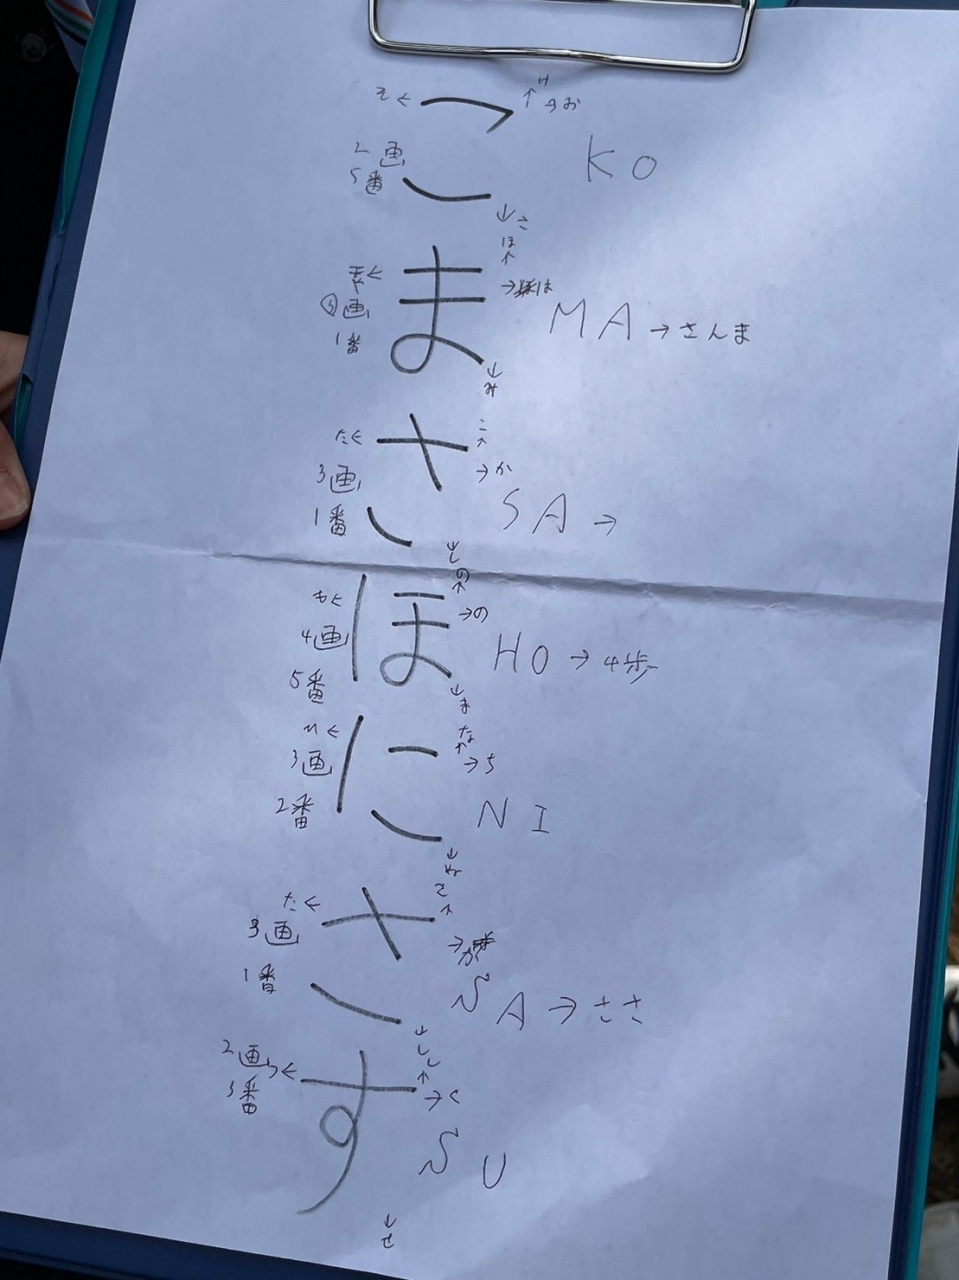 そ← こ ↑け →お
2画
5番
KO
↓さ
ほ↑
ま
→は
画
1番
MA→さんま
↓み
た← さ こ↑
→か
3画
1番
SA→
↓し
の↑
も← ほ →の
4画
5番
HO→4歩
↓ま
に な
→ち
3画
2番
NI
↓ね
た← さ こ↑
3画
→か
1番
SA→ささ
↓し
2画 す し↑
3番
→く
SU
↓せ